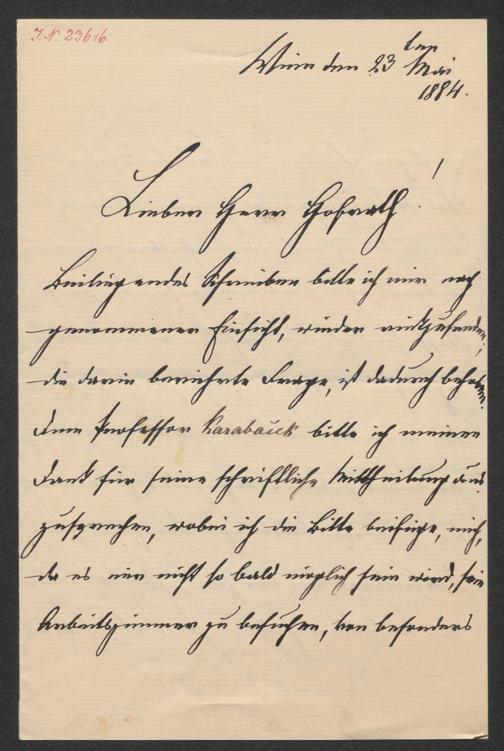 J.N. 23616.
Wien den 23ten Mai
1884.
Lieber Herr Hofrath!
Beiliegendes Schreiben bitte ich mir nach
genommener Einsicht, wieder rückzusenden;
die darin berührte Frage, ist dadurch behoben.
Dem Professor Karabaček bitte ich meinen
Dank für seine schriftliche Mittheilung aus-
zusprechen, wobei ich die Bitte beifüge, mich,
da es mir nicht so bald möglich sein wird, sein
Arbeitszimmer zu besuchen, von besonders